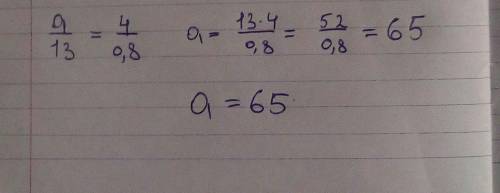 a/13 = 4/0,8 a = 13·4/0,8 = 52/0,8 = 65
a = 65